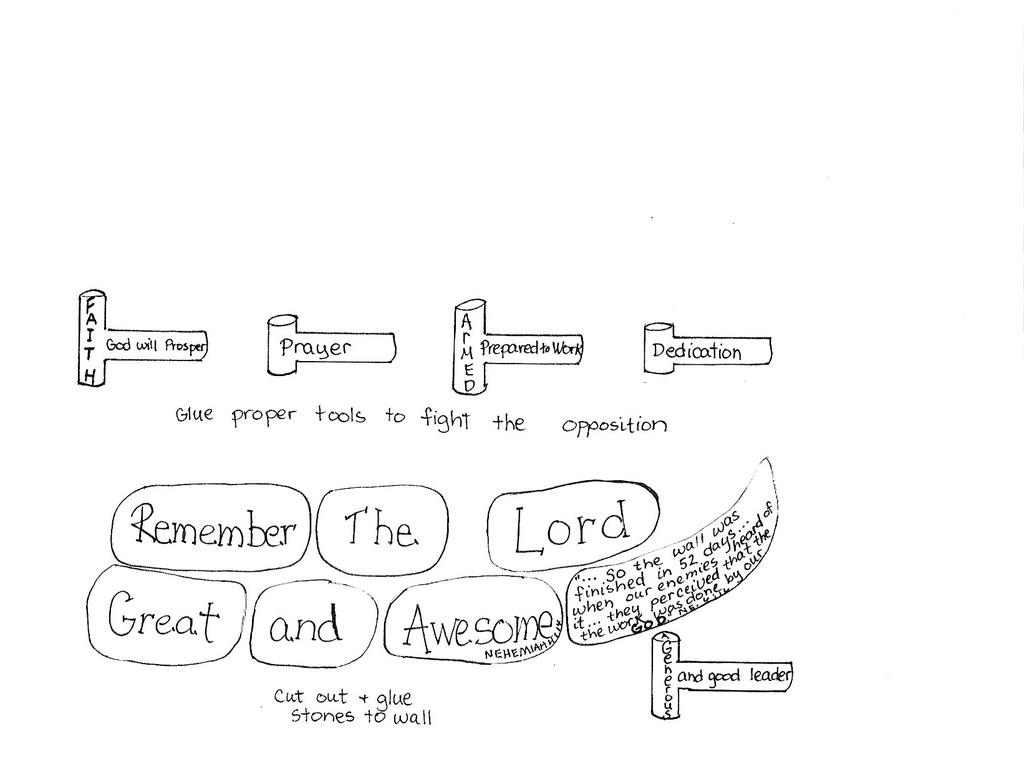 FAITH
God will Prosper
Prayer
ArMED
Prepared to Work
Dedication
Glue proper tools to fight the opposition
Remember The Lord
Great and Awesome
NEHEMIAH
"... So the wall was
finished in 52 days...
when our enemies heard of
it... they perceived that the
the work was done by our
GOD"
A Generous
and good leader
Cut out + glue
stones to wall